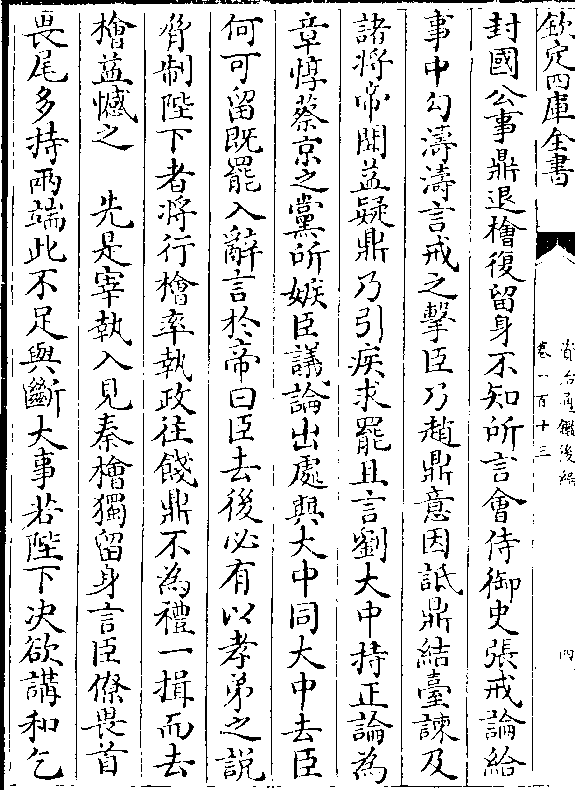 欽定四庫全書
資治通鑑後編
卷一百十三
四
封國公事鼎退檜復留身不知所言會侍御史張戒論給
事中勾濤濤言戒之擊臣乃趙鼎意因詆鼎結臺諫及
諸將帝聞益疑鼎乃引疾求罷且言劉大中持正論為
章惇蔡京之黨所嫉臣議論出處與大中同大中去臣
何可留既罷入辭言於帝曰臣去後必有以孝弟之說
脅制陛下者將行檜率執政往餞鼎不為禮一揖而去
檜益憾之　先是宰執入見秦檜獨留身言臣僚畏首
畏尾多持兩端此不足與斷大事若陛下決欲講和乞